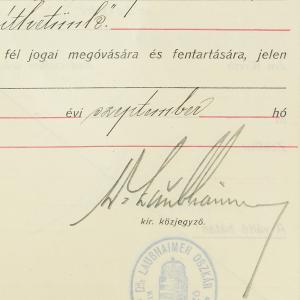 fél jogai megóvására és fentartására, jelen
évi szeptember hó
Dr Laubhaimer
kir. közjegyző.
DR. LAUBHAIMER OSZKÁR